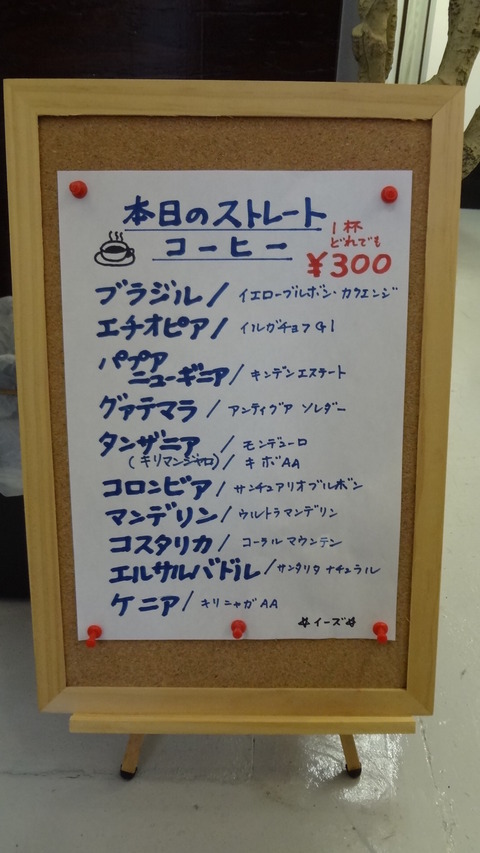 本日のストレート
コーヒー
1杯
どれでも
¥300
ブラジル/イエローブルボン・カクエンジ
エチオピア/イルガチョフG1
パプア
ニューギニア/キンデンエステート
グァテマラ/アンティグア ソレダー
タンザニア/モンデューロ
(キリマンジャロ)/キボAA
コロンビア/サンチュアリオブルボン
マンデリン/ウルトラマンデリン
コスタリカ/コーラルマウンテン
エルサルバドル/サンタリタ ナチュラル
ケニア/キリニャガAA
☆イーズ☆